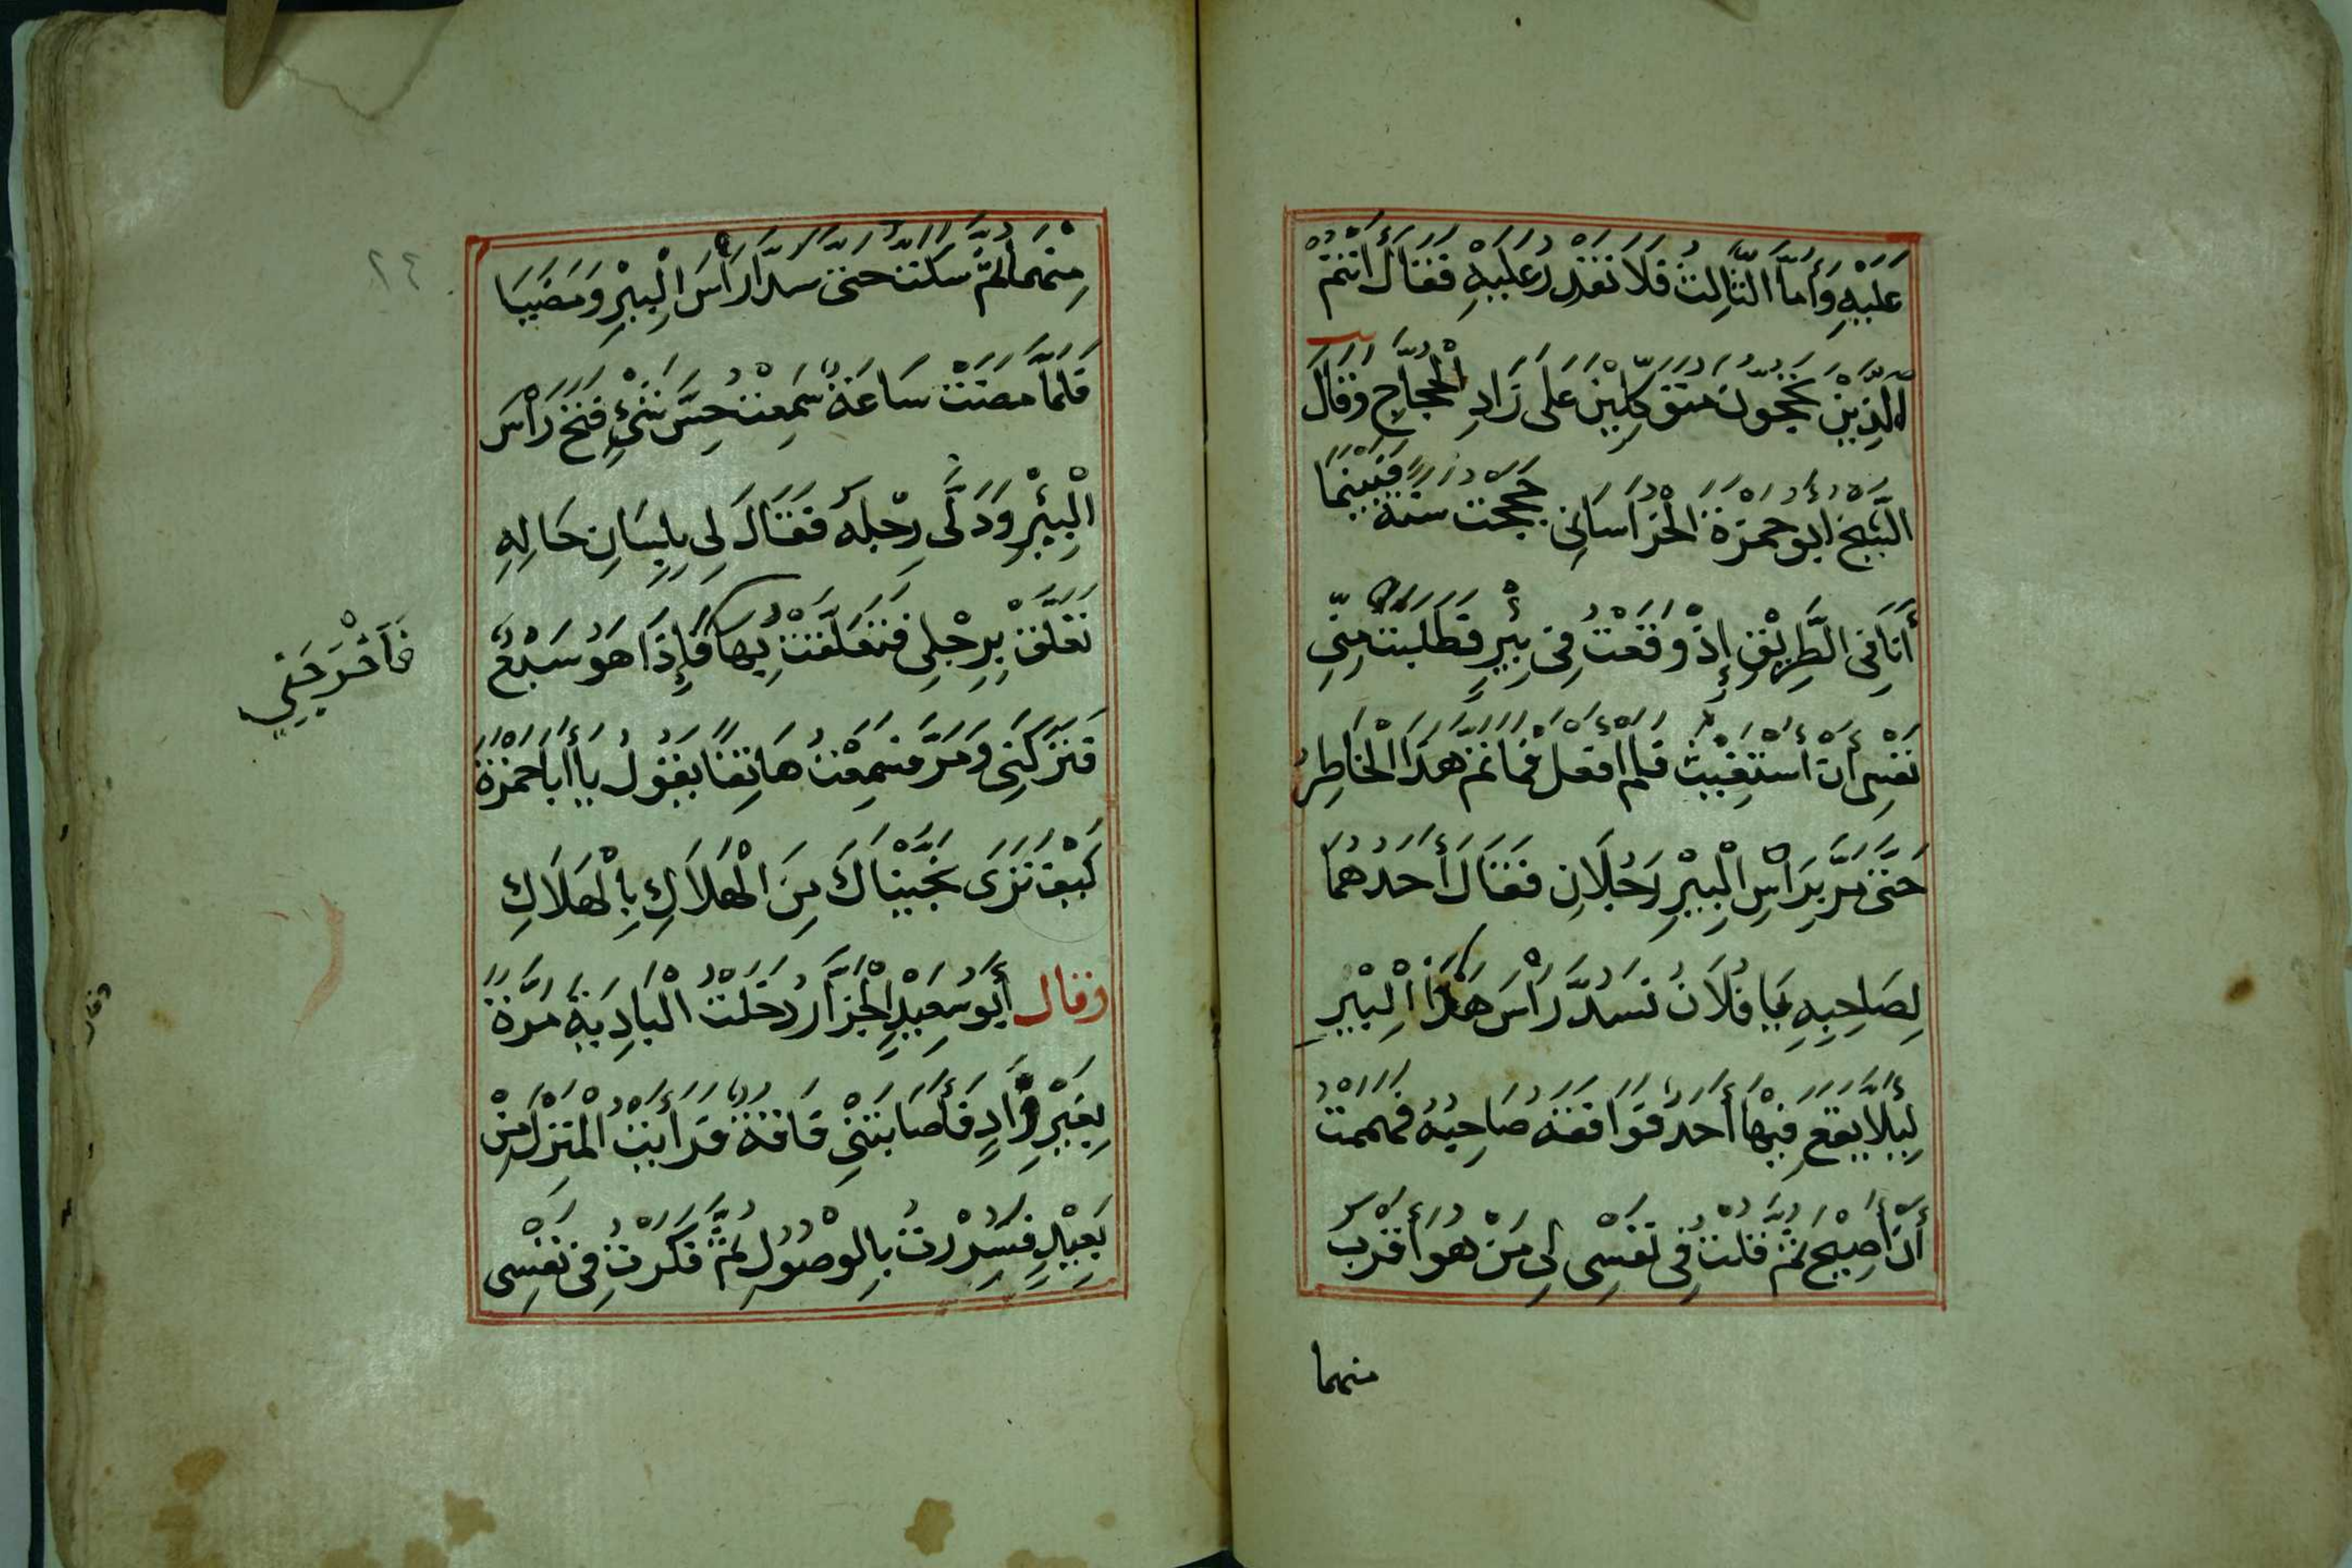 عَلَيْهِ وَأَمَّا الثَّالِثُ فَلَا نَقْدِرُ عَلَيْهِ فَقَالَ أَنْتُمْ
الَّذِيْنَ تَحُجُّوْنَ مُتَوَكِّلِيْنَ عَلَى زَادِ الْحُجَّاجِ وَقَالَ
الشَّيْخُ أَبُو حَمْزَةَ الْخُرَاسَانِي حَجَجْتُ سَنَةً فَبَيْنَمَا
أَنَا فِي الطَّرِيْقِ إِذْ وَقَعْتُ فِي بِئْرٍ فَطَلَبَتْ مِنِّي
نَفْسِي أَنْ أَسْتَغِيْثَ فَلَمْ أَفْعَلْ فَمَا تَمَّ هَذَا الْخَاطِرُ
حَتَّى مَرَّ بِرَأْسِ الْبِيْرِ رَجُلَانِ فَقَالَ أَحَدُهُمَا
لِصَاحِبِهِ يَا فُلَانُ نَسُدُّ رَأْسَ هَذَا الْبِيْرِ
لِيَلَّا يَقَعَ فِيْهَا أَحَدٌ فَوَافَقَهُ صَاحِبُهُ فَهَمَمْتُ
أَنْ أَصِيْحَ ثُمَّ قُلْتُ فِي نَفْسِي لِى مَنْ هُوَ أَقْرَبُ
منهما
مِنْهُمَا ثُمَّ سَكَتُّ حَتَّى سَدَّا رَأْسَ الْبِيْرِ وَمَضَيَا
فَلَمَّا مَضَتْ سَاعَةٌ سَمِعْتُ حِسَّ شَيْءٍ فَتَحَ رَأْسَ
الْبِئْرِ وَدَلَّى رِجْلَهُ فَقَالَ لِي بِلِسَانِ حَالِهِ
تَعَلَّقْ بِرِجْلِي فَتَعَلَّقْتُ بِهَا فَإِذَا هُوَ سَبْعٌ
فَأَخْرَجَنِي
فَتَرَكَنِي وَمَرَّ فَسَمِعْتُ هَاتِفًا يَقُوْلُ يَا أَبَا حَمْزَةَ
كَيْفَ تَرَى نَجَّيْنَاكَ مِنَ الْهَلَاكِ بِالْهَلَاكِ
وَقَالَ أَبُو سَعِيْدٍ الْخَزَّازُ دَخَلْتُ الْبَادِيَةَ مَرَّةً
بِغَيْرِ زَادٍ فَأَصَابَتْنِي فَاقَةٌ فَرَأَيْتُ الْمَنْزِلَ مِنْ
بَعِيْدٍ فَسُرِرْتُ بِالْوُصُوْلِ ثُمَّ فَكَرْتُ فِي نَفْسِي